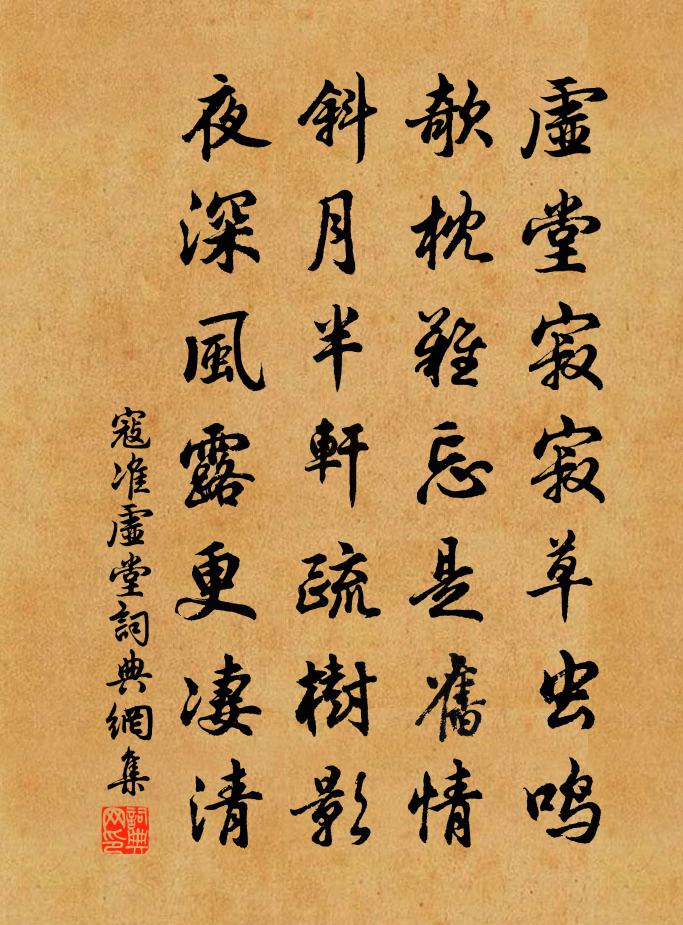 虛堂寂寂草虫鳴
欹枕難忘是舊情
斜月半軒疏樹影
夜深風露更凄清
寇准虛堂詞典網集
詞典网印